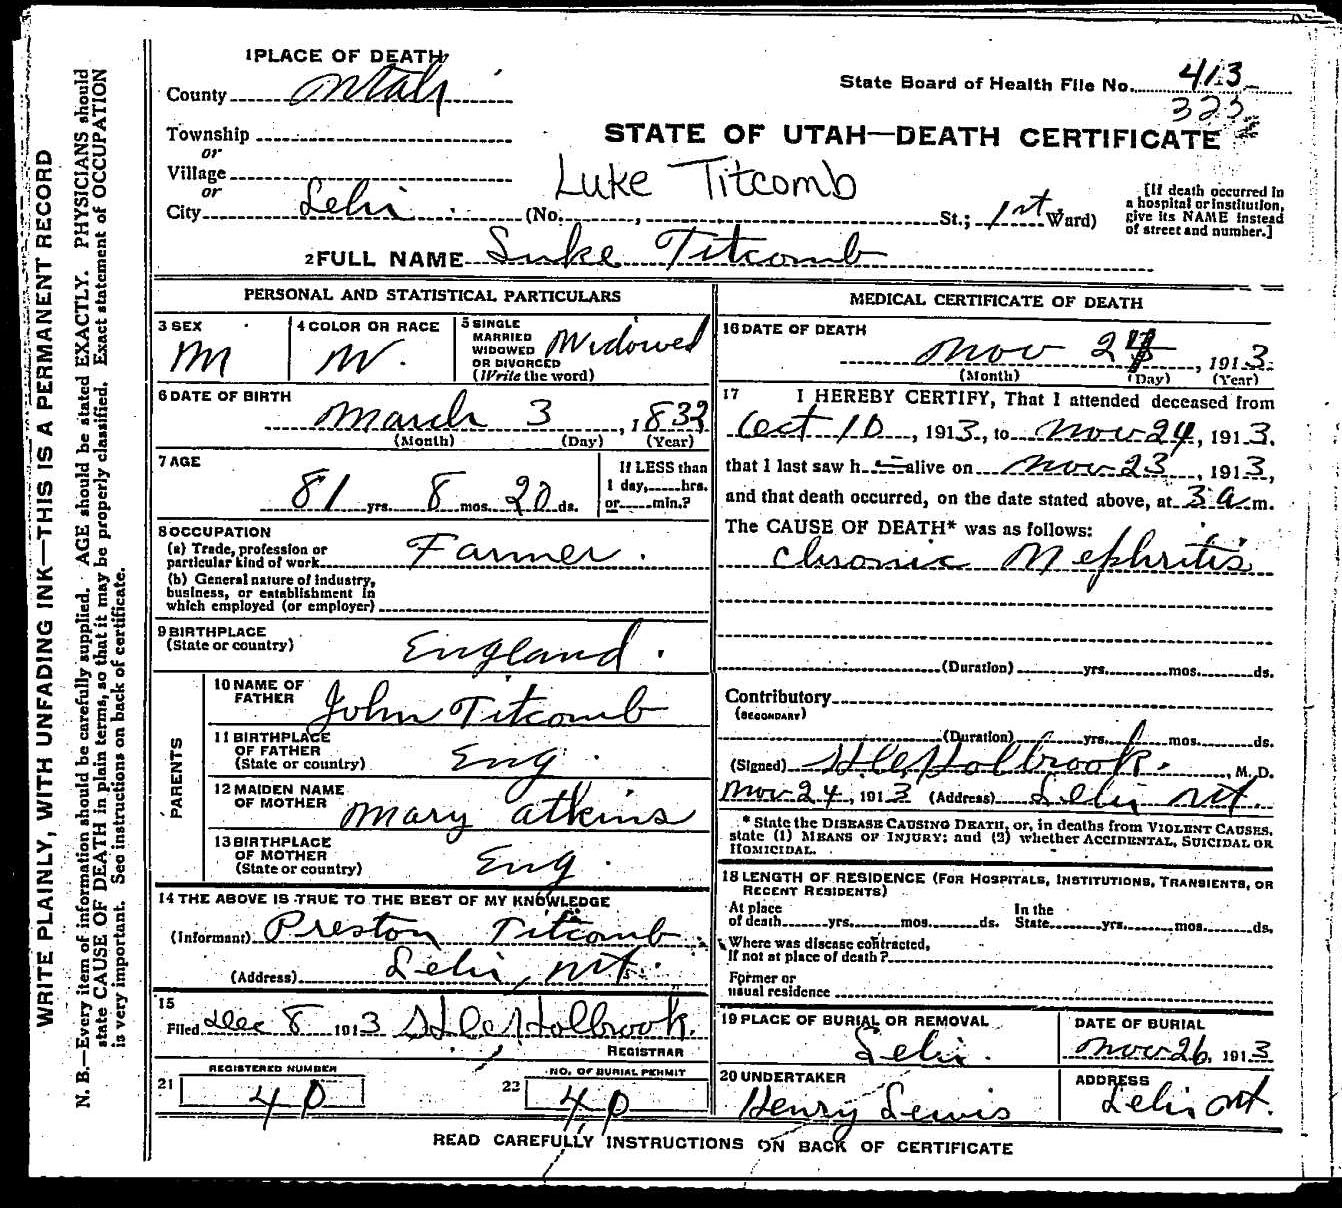 WRITE PLAINLY, WITH UNFADING INK—THIS IS A PERMANENT RECORD
N. B.—Every item of information should be carefully supplied. AGE should be stated EXACTLY. PHYSICIANS should
state CAUSE OF DEATH in plain terms, so that it may be properly classified. Exact statement of OCCUPATION
is very important. See instructions on back of certificate.
1 PLACE OF DEATH
County Utah
State Board of Health File No. 413
323
Township
or
STATE OF UTAH—DEATH CERTIFICATE
Village
or
Luke Titcomb
City Lehi (No. , St.; 1st Ward)
[If death occurred in
a hospital or institution,
give its NAME instead
of street and number.]
2 FULL NAME Luke Titcomb
PERSONAL AND STATISTICAL PARTICULARS
3 SEX
M
4 COLOR OR RACE
W.
5 SINGLE
MARRIED
WIDOWED
OR DIVORCED
(Write the word)
Widowed
6 DATE OF BIRTH
March 3, 1832
(Month) (Day) (Year)
7 AGE
81 yrs. 8 mos. 20 ds.
If LESS than
1 day, hrs.
or min.?
8 OCCUPATION
(a) Trade, profession or
particular kind of work Farmer.
(b) General nature of industry,
business, or establishment in
which employed (or employer)
9 BIRTHPLACE
(State or country)
England.
PARENTS
10 NAME OF
FATHER
John Titcomb
11 BIRTHPLACE
OF FATHER
(State or country)
Eng.
12 MAIDEN NAME
OF MOTHER
Mary Atkins
13 BIRTHPLACE
OF MOTHER
(State or country)
Eng
14 THE ABOVE IS TRUE TO THE BEST OF MY KNOWLEDGE
(Informant) Preston Titcomb
(Address) Lehi, Ut.
15
Filed Dec 8 1913 H. C. Holbrook.
REGISTRAR
REGISTERED NUMBER
21 40
NO. OF BURIAL PERMIT
22 40
MEDICAL CERTIFICATE OF DEATH
16 DATE OF DEATH
Nov , 1913
(Month) (Day) (Year)
17 I HEREBY CERTIFY, That I attended deceased from
Oct 10, 1913, to Nov 24, 1913.
that I last saw h alive on Nov 23, 1913,
and that death occurred, on the date stated above, at 3 a m.
The CAUSE OF DEATH* was as follows:
Chronic Nephritis
(Duration) yrs. mos. ds.
Contributory
(SECONDARY)
(Duration) yrs. mos. ds.
(Signed) H. C. Holbrook. , M. D.
Nov 24, 1913 (Address) Lehi Ut.
* State the DISEASE CAUSING DEATH, or, in deaths from VIOLENT CAUSES,
state (1) MEANS OF INJURY; and (2) whether ACCIDENTAL, SUICIDAL OR
HOMICIDAL.
18 LENGTH OF RESIDENCE (FOR HOSPITALS, INSTITUTIONS, TRANSIENTS, OR
RECENT RESIDENTS)
At place
of death yrs. mos. ds.
In the
State yrs. mos. ds.
Where was disease contracted,
If not at place of death?
Former or
usual residence
19 PLACE OF BURIAL OR REMOVAL
Lehi.
DATE OF BURIAL
Nov 26, 1913
20 UNDERTAKER
Henry Lewis
ADDRESS
Lehi Ut.
READ CAREFULLY INSTRUCTIONS ON BACK OF CERTIFICATE